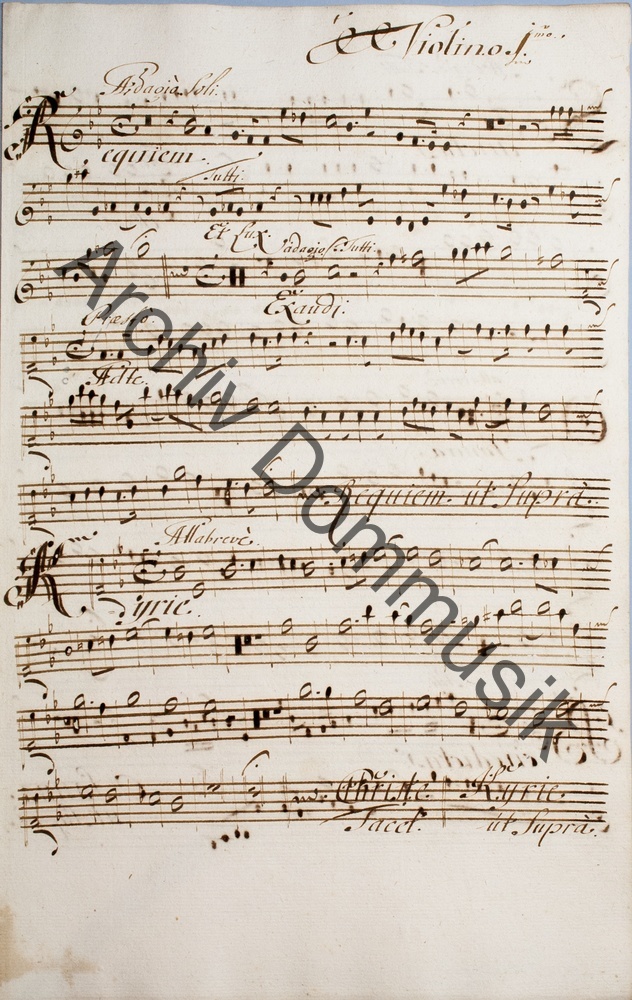 Violino I.mo
Adagio Soli.
Requiem.
Tutti
Et Lux.
adagio Tutti.
Exaudi.
Presto.
Ad te.
Requiem ut Suprà.
Allabrevè.
Kyrie.
Christe Kyrie.
Tacet. ut Suprà.
Archiv Dommusik